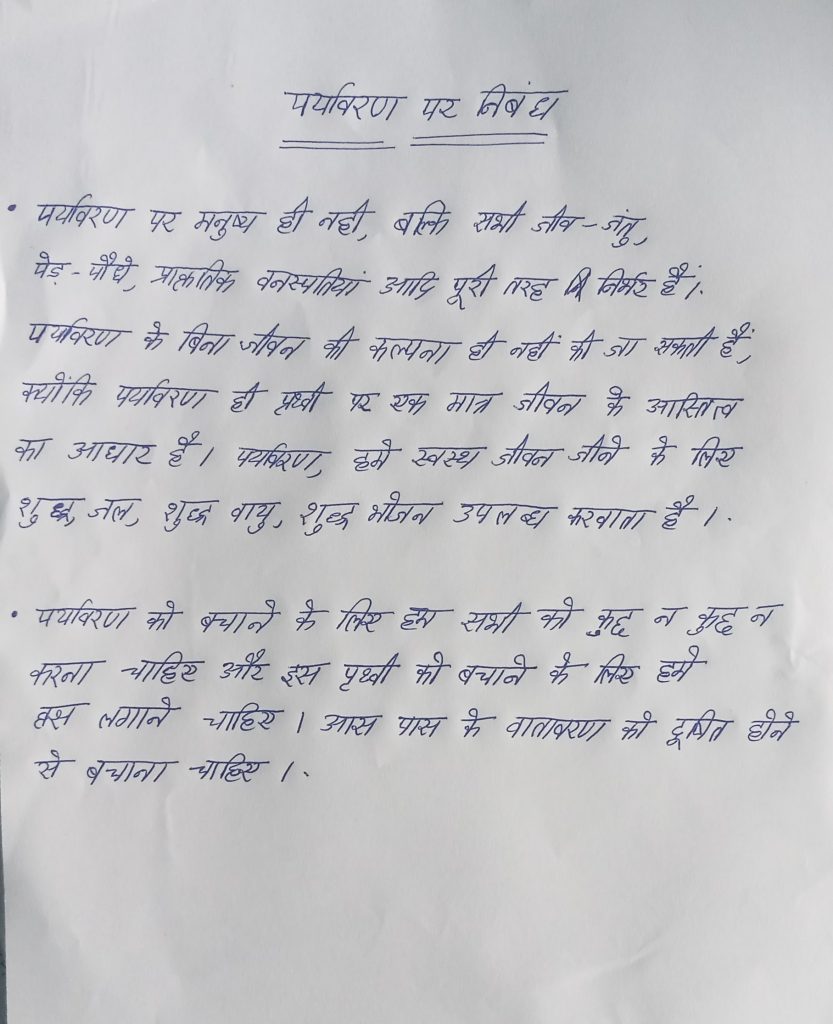 पर्यावरण पर निबंध
• पर्यावरण पर मनुष्य ही नही, बल्कि सभी जीव-जंतु,
पेड़-पौधे, प्राकृतिक वनस्पतियां आदि पूरी तरह निर्भर हैं।
पर्यावरण के बिना जीवन की कल्पना ही नहीं की जा सकती हैं,
क्योंकि पर्यावरण ही पृथ्वी पर एक मात्र जीवन के आस्तित्व
का आधार है। पर्यावरण, हमे स्वस्थ जीवन जीने के लिए
शुद्ध, जल, शुद्ध वायु, शुद्ध भोजन उपलब्ध करवाता है।
• पर्यावरण को बचाने के लिए हम सभी को कुछ न कुछ न
करना चाहिए और इस पृथ्वी को बचाने के लिए हमे
लगाने चाहिए। आस पास के वातावरण को दूषित होने
से बचाना चाहिए।